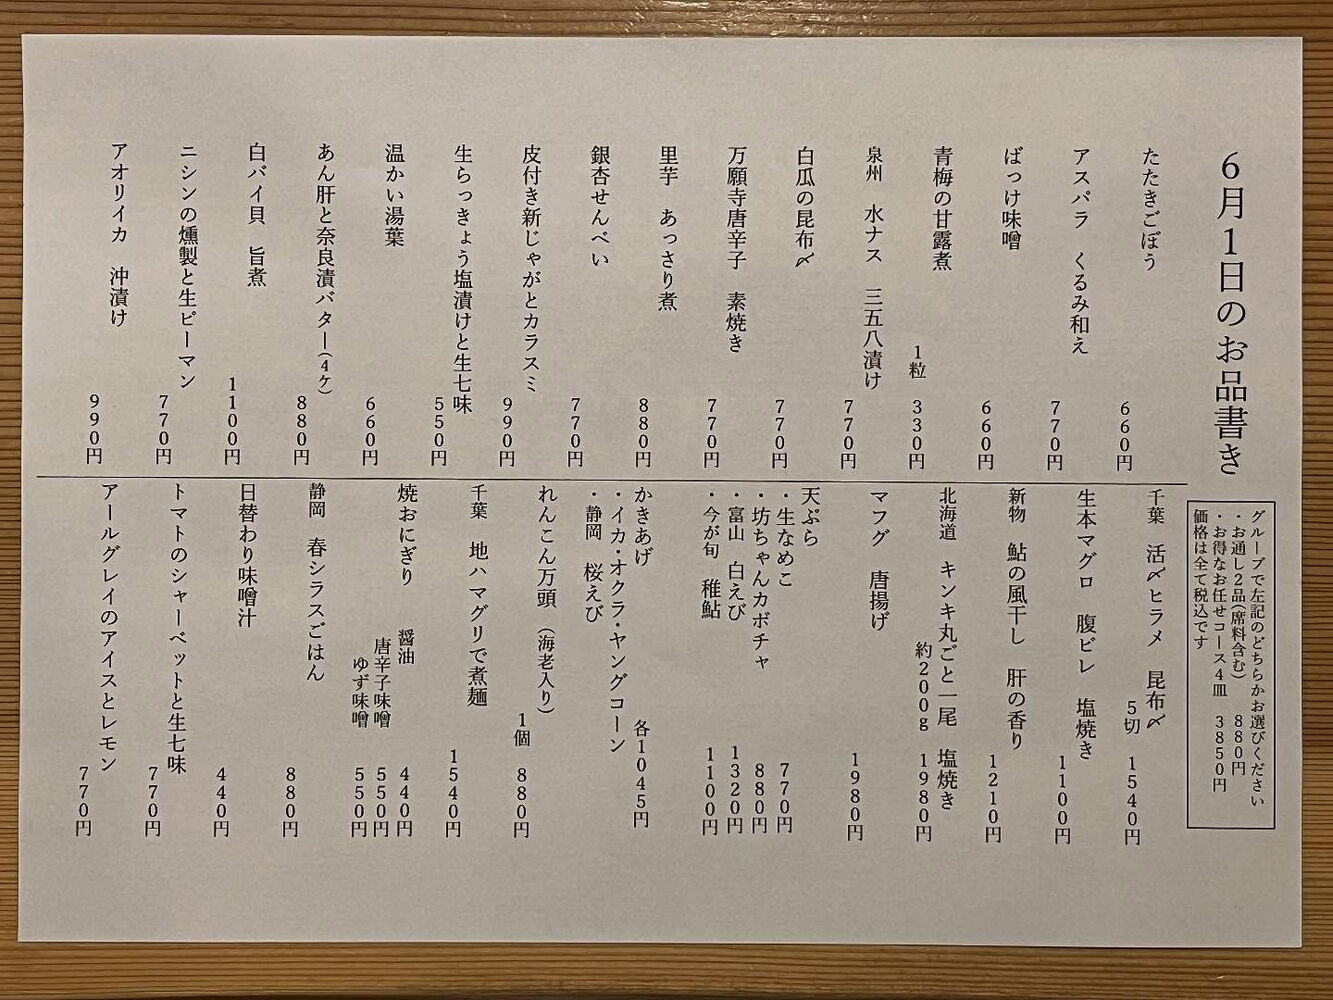 6月1日のお品書き
グループで左記のどちらかお選びください
・お通し2品(席料含む) 880円
・お得なお任せコース4皿 3850円
価格は全て税込です
たたきごぼう 660円
アスパラ くるみ和え 770円
ばっけ味噌 660円
青梅の甘露煮 1粒 330円
泉州 水ナス 三五八漬け 770円
白瓜の昆布〆 770円
万願寺唐辛子 素焼き 770円
里芋 あっさり煮 880円
銀杏せんべい 770円
皮付き新じゃがとカラスミ 990円
生らっきょう塩漬けと生七味 550円
温かい湯葉 660円
あん肝と奈良漬バター(4ケ) 880円
白バイ貝 旨煮 1100円
ニシンの燻製と生ピーマン 770円
アオリイカ 沖漬け 990円
千葉 活〆ヒラメ 昆布〆 5切 1540円
生本マグロ 腹ビレ 塩焼き 1100円
新物 鮎の風干し 肝の香り 1210円
北海道 キンキ丸ごと一尾 塩焼き
約200g 1980円
マフグ 唐揚げ 1980円
天ぷら
・生なめこ 770円
・坊ちゃんカボチャ 880円
・富山 白えび 1320円
・今が旬 稚鮎 1100円
かきあげ 各1045円
・イカ・オクラ・ヤングコーン
・静岡 桜えび
れんこん万頭 (海老入り) 1個 880円
千葉 地ハマグリで煮麺 1540円
焼おにぎり 醤油 440円
唐辛子味噌 550円
ゆず味噌 550円
静岡 春シラスごはん 880円
日替わり味噌汁 440円
トマトのシャーベットと生七味 770円
アールグレイのアイスとレモン 770円